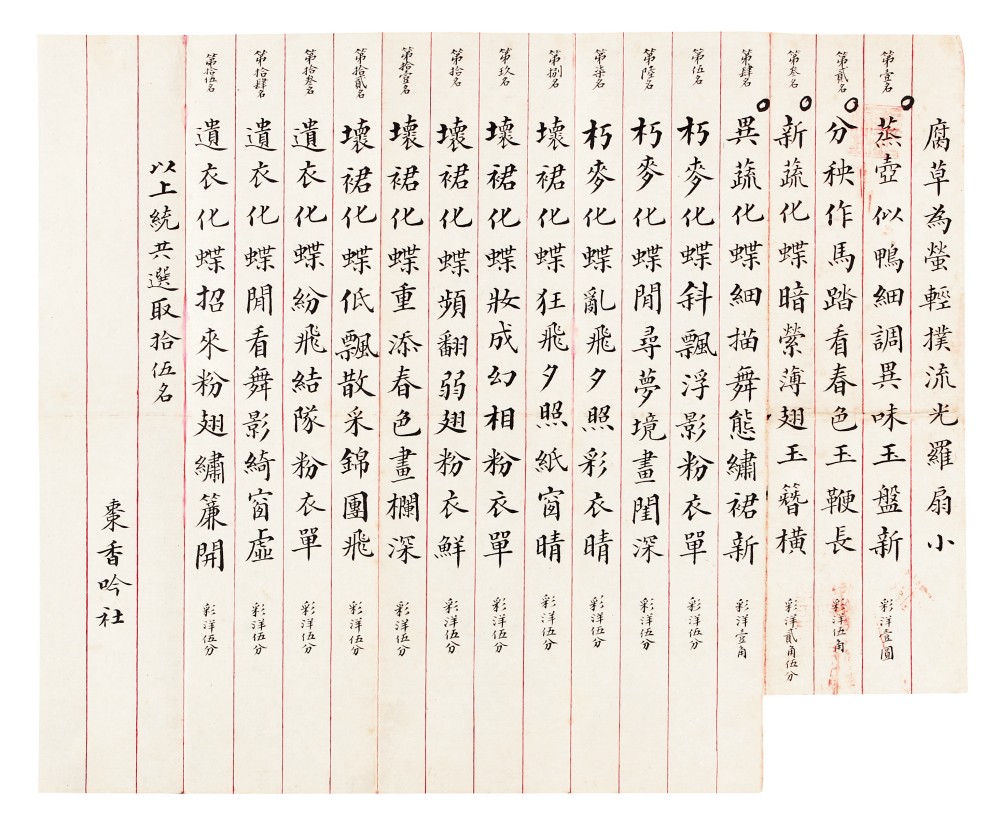 腐草為螢輕撲流光羅扇小
第壹名 蒸壺似鴨細調異味玉盤新 彩洋壹圓
第貳名 分秧作馬踏看春色玉鞭長 彩洋伍角
第叁名 新蔬化蝶暗縈薄翅玉簪橫 彩洋貳角伍分
第肆名 異蔬化蝶細描舞態繡裙新 彩洋壹角
第伍名 朽麥化蝶斜飄浮影粉衣單 彩洋伍分
第陸名 朽麥化蝶閒尋夢境畫閨深 彩洋伍分
第柒名 朽麥化蝶亂飛夕照彩衣晴 彩洋伍分
第捌名 壞裙化蝶狂飛夕照紙窗晴 彩洋伍分
第玖名 壞裙化蝶妝成幻相粉衣單 彩洋伍分
第拾名 壞裙化蝶頻翻弱翅粉衣鮮 彩洋伍分
第拾壹名 壞裙化蝶重添春色畫欄深 彩洋伍分
第拾貳名 壞裙化蝶低飄散采錦團飛 彩洋伍分
第拾叁名 遺衣化蝶紛飛結隊粉衣單 彩洋伍分
第拾肆名 遺衣化蝶閒看舞影綺窗虛 彩洋伍分
第拾伍名 遺衣化蝶招來粉翅繡簾開 彩洋伍分
以上統共選取拾伍名
棗香吟社